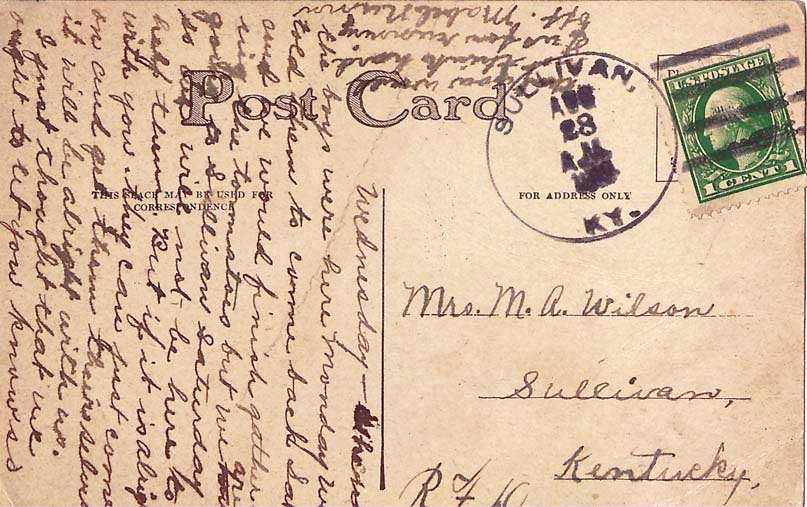 Post Card
THIS SPACE MAY BE USED FOR
CORRESPONDENCE
FOR ADDRESS ONLY
SULLIVAN,
AUG
28
A.M.
KY.
U.S. POSTAGE
1 CENT 1
Mrs. M. A. Wilson
Sullivan,
Kentucky,
R F D
Wednesday— When
the boys were here Monday we
told them to come back Sat
and we would finish gather
ing the tomatoes but we are
going to Sullivan Saturday
so we will not be here to
help them. But if it is alright
with you they can just come
on and get them theirselves
it will be alright with us.
I just thought that we
ought to let you know so
hard
for running
off. Mabel